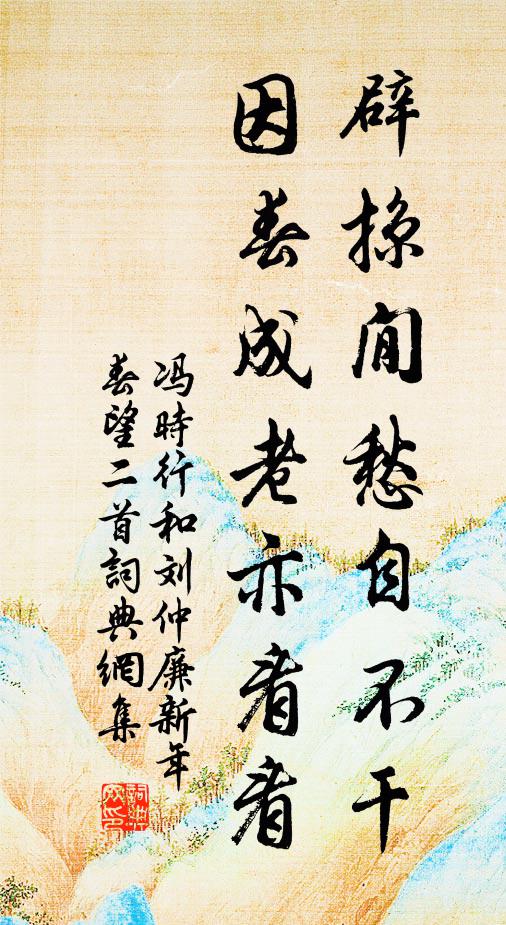 辟掠閒愁自不干
因春成老亦看看
冯時行和刘仲廉新年
春望二首詞典網集